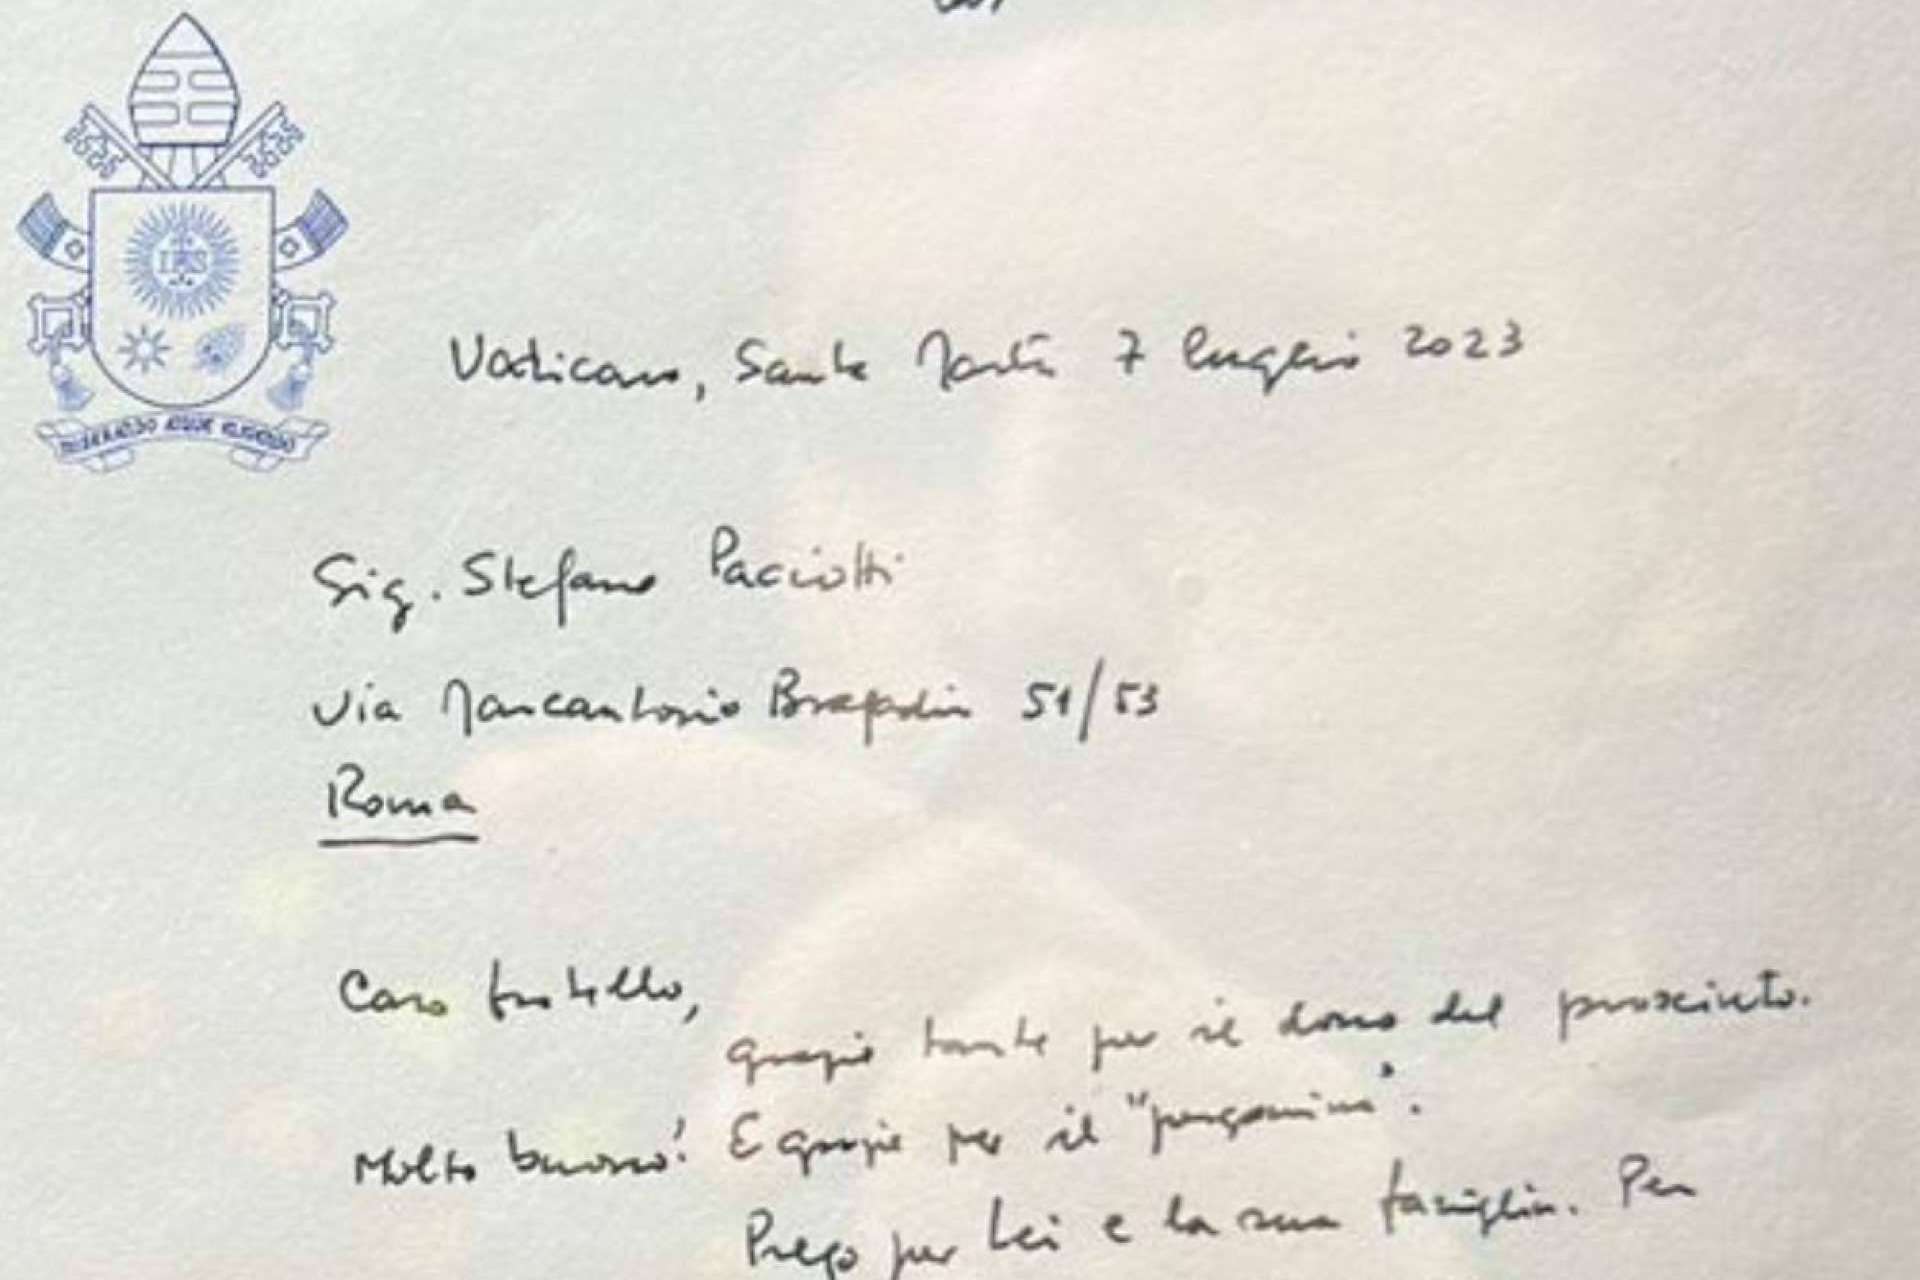 IHS
MISERANDO ATQUE ELIGENDO
Vaticano, Santa Marta 7 luglio 2023
Sig. Stefano Paciotti
Via Marcantonio Bragadin 51/53
Roma
Caro fratello,
grazie tante per il dono del prosciutto.
Molto buono! E grazie per il "pargamino".
Prego per Lei e la sua famiglia. Per